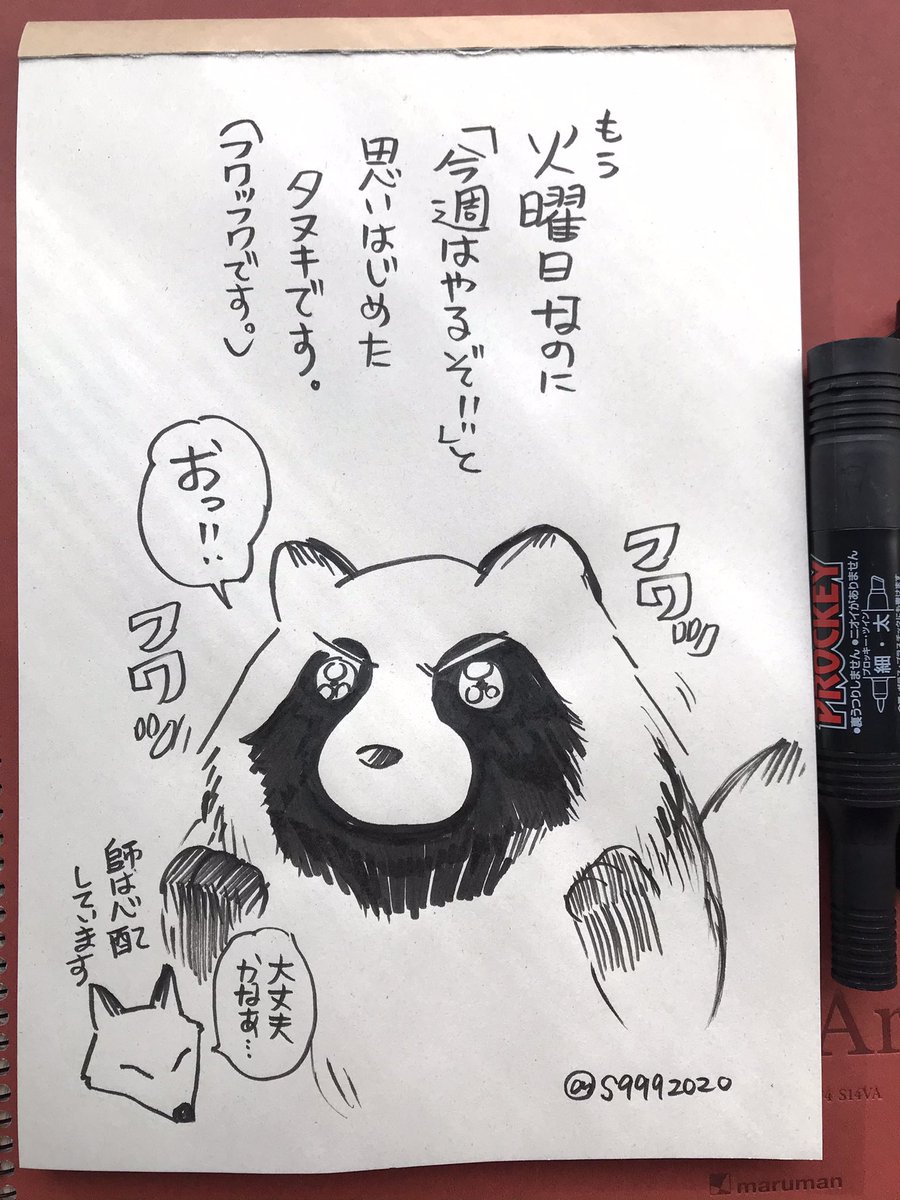 もう
火曜日なのに
「今週はやるぞ!!」と
思いはじめた
タヌキです。
(フワッフワです。)
おっ!!
フワ
フワ
師は心配
しています
大丈夫
かなぁ…
@S9992020
PROCKEY
細・太
プロッキー・ツイン
•裏うつりしません •ニオイがありません
Ar
S14VA
maruman